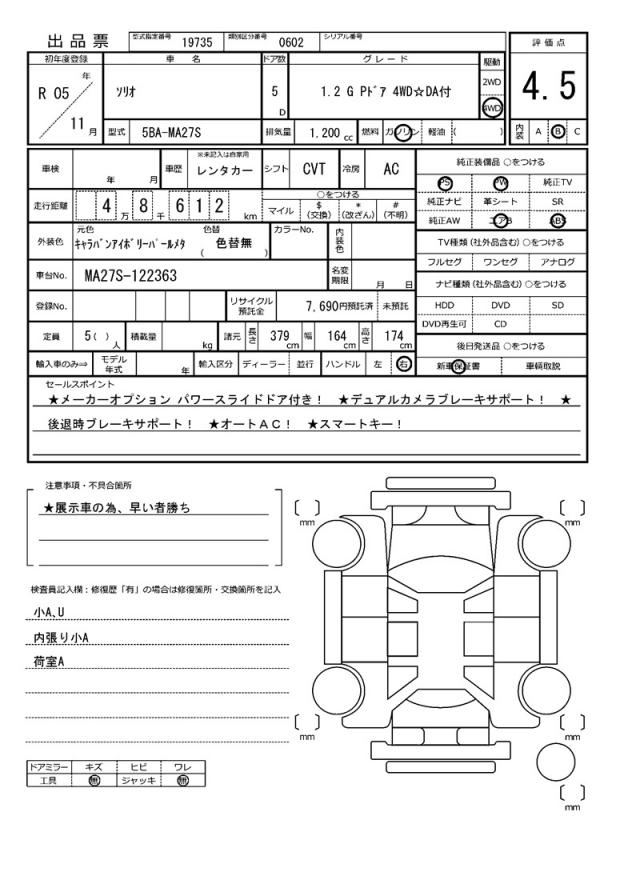 出品票
型式指定番号 19735 類別区分番号 0602 シリアル番号
評価点
4.5
内装 A B C
初年度登録 車名 ドア数 グレード 駆動
R 05 年 11 月
ソリオ
5 D
1.2 G Pドア 4WD☆DA付
2WD
4WD
型式 5BA-MA27S 排気量 1,200 cc 燃料 ガソリン 軽油 ( )
車検 年 月 車歴 ※未記入は自家用 レンタカー シフト CVT 冷房 AC
走行距離 4 万 8 千 6 1 2 km
○をつける
マイル $ (交換) * (改ざん) # (不明)
外装色 元色 キャラバンアイボリーパールメタ 色替 ( 色替無 ) カラーNo. 内装色
車台No. MA27S-122363 名変期限 月 日
登録No. リサイクル預託金 7,690円預託済 未預託
定員 5( ) 人 積載量 kg 諸元 長さ 379 cm 幅 164 cm 高さ 174 cm
輸入車のみ⇒ モデル年式 年 輸入区分 ディーラー 並行 ハンドル 左 右
純正装備品 ○をつける
PS PW 純正TV
純正ナビ 革シート SR
純正AW エアB ABS
TV種類(社外品含む)○をつける
フルセグ ワンセグ アナログ
ナビ種類(社外品含む)○をつける
HDD DVD SD
DVD再生可 CD
後日発送品 ○をつける
新車保証書 車輌取説
セールスポイント
★メーカーオプション パワースライドドア付き! ★デュアルカメラブレーキサポート! ★
後退時ブレーキサポート! ★オートAC! ★スマートキー!
注意事項・不具合箇所
★展示車の為、早い者勝ち
検査員記入欄:修復歴「有」の場合は修復箇所・交換箇所を記入
小A、U
内張り小A
荷室A
ドアミラー キズ ヒビ ワレ
工具 無 ジャッキ 無
[ ] mm
[ ] mm
[ ] mm
[ ] mm
[ ] mm